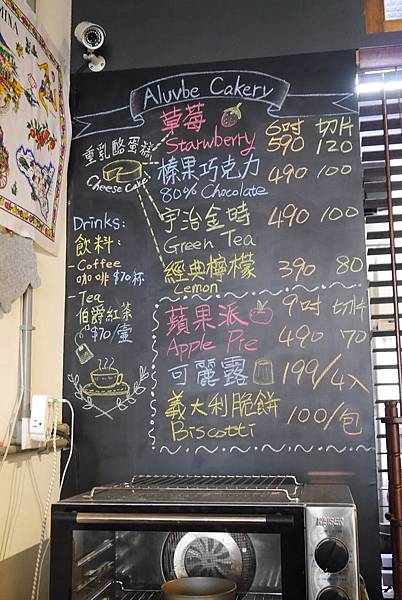 Aluvbe Cakery
重乳酪蛋糕
Cheese Cake
草莓 6吋 切片
Starwberry 590 120
榛果巧克力 490 100
80% Chocolate
宇治金時 490 100
Green Tea
經典檸檬 390 80
Lemon
蘋果派 9吋 切片
Apple Pie 490 70
可麗露 199/4入
義大利脆餅 100/包
Biscotti
Drinks:
飲料:
- Coffee
咖啡 $70/杯
- Tea
伯爵紅茶
$70/壺
KAISER
MINA